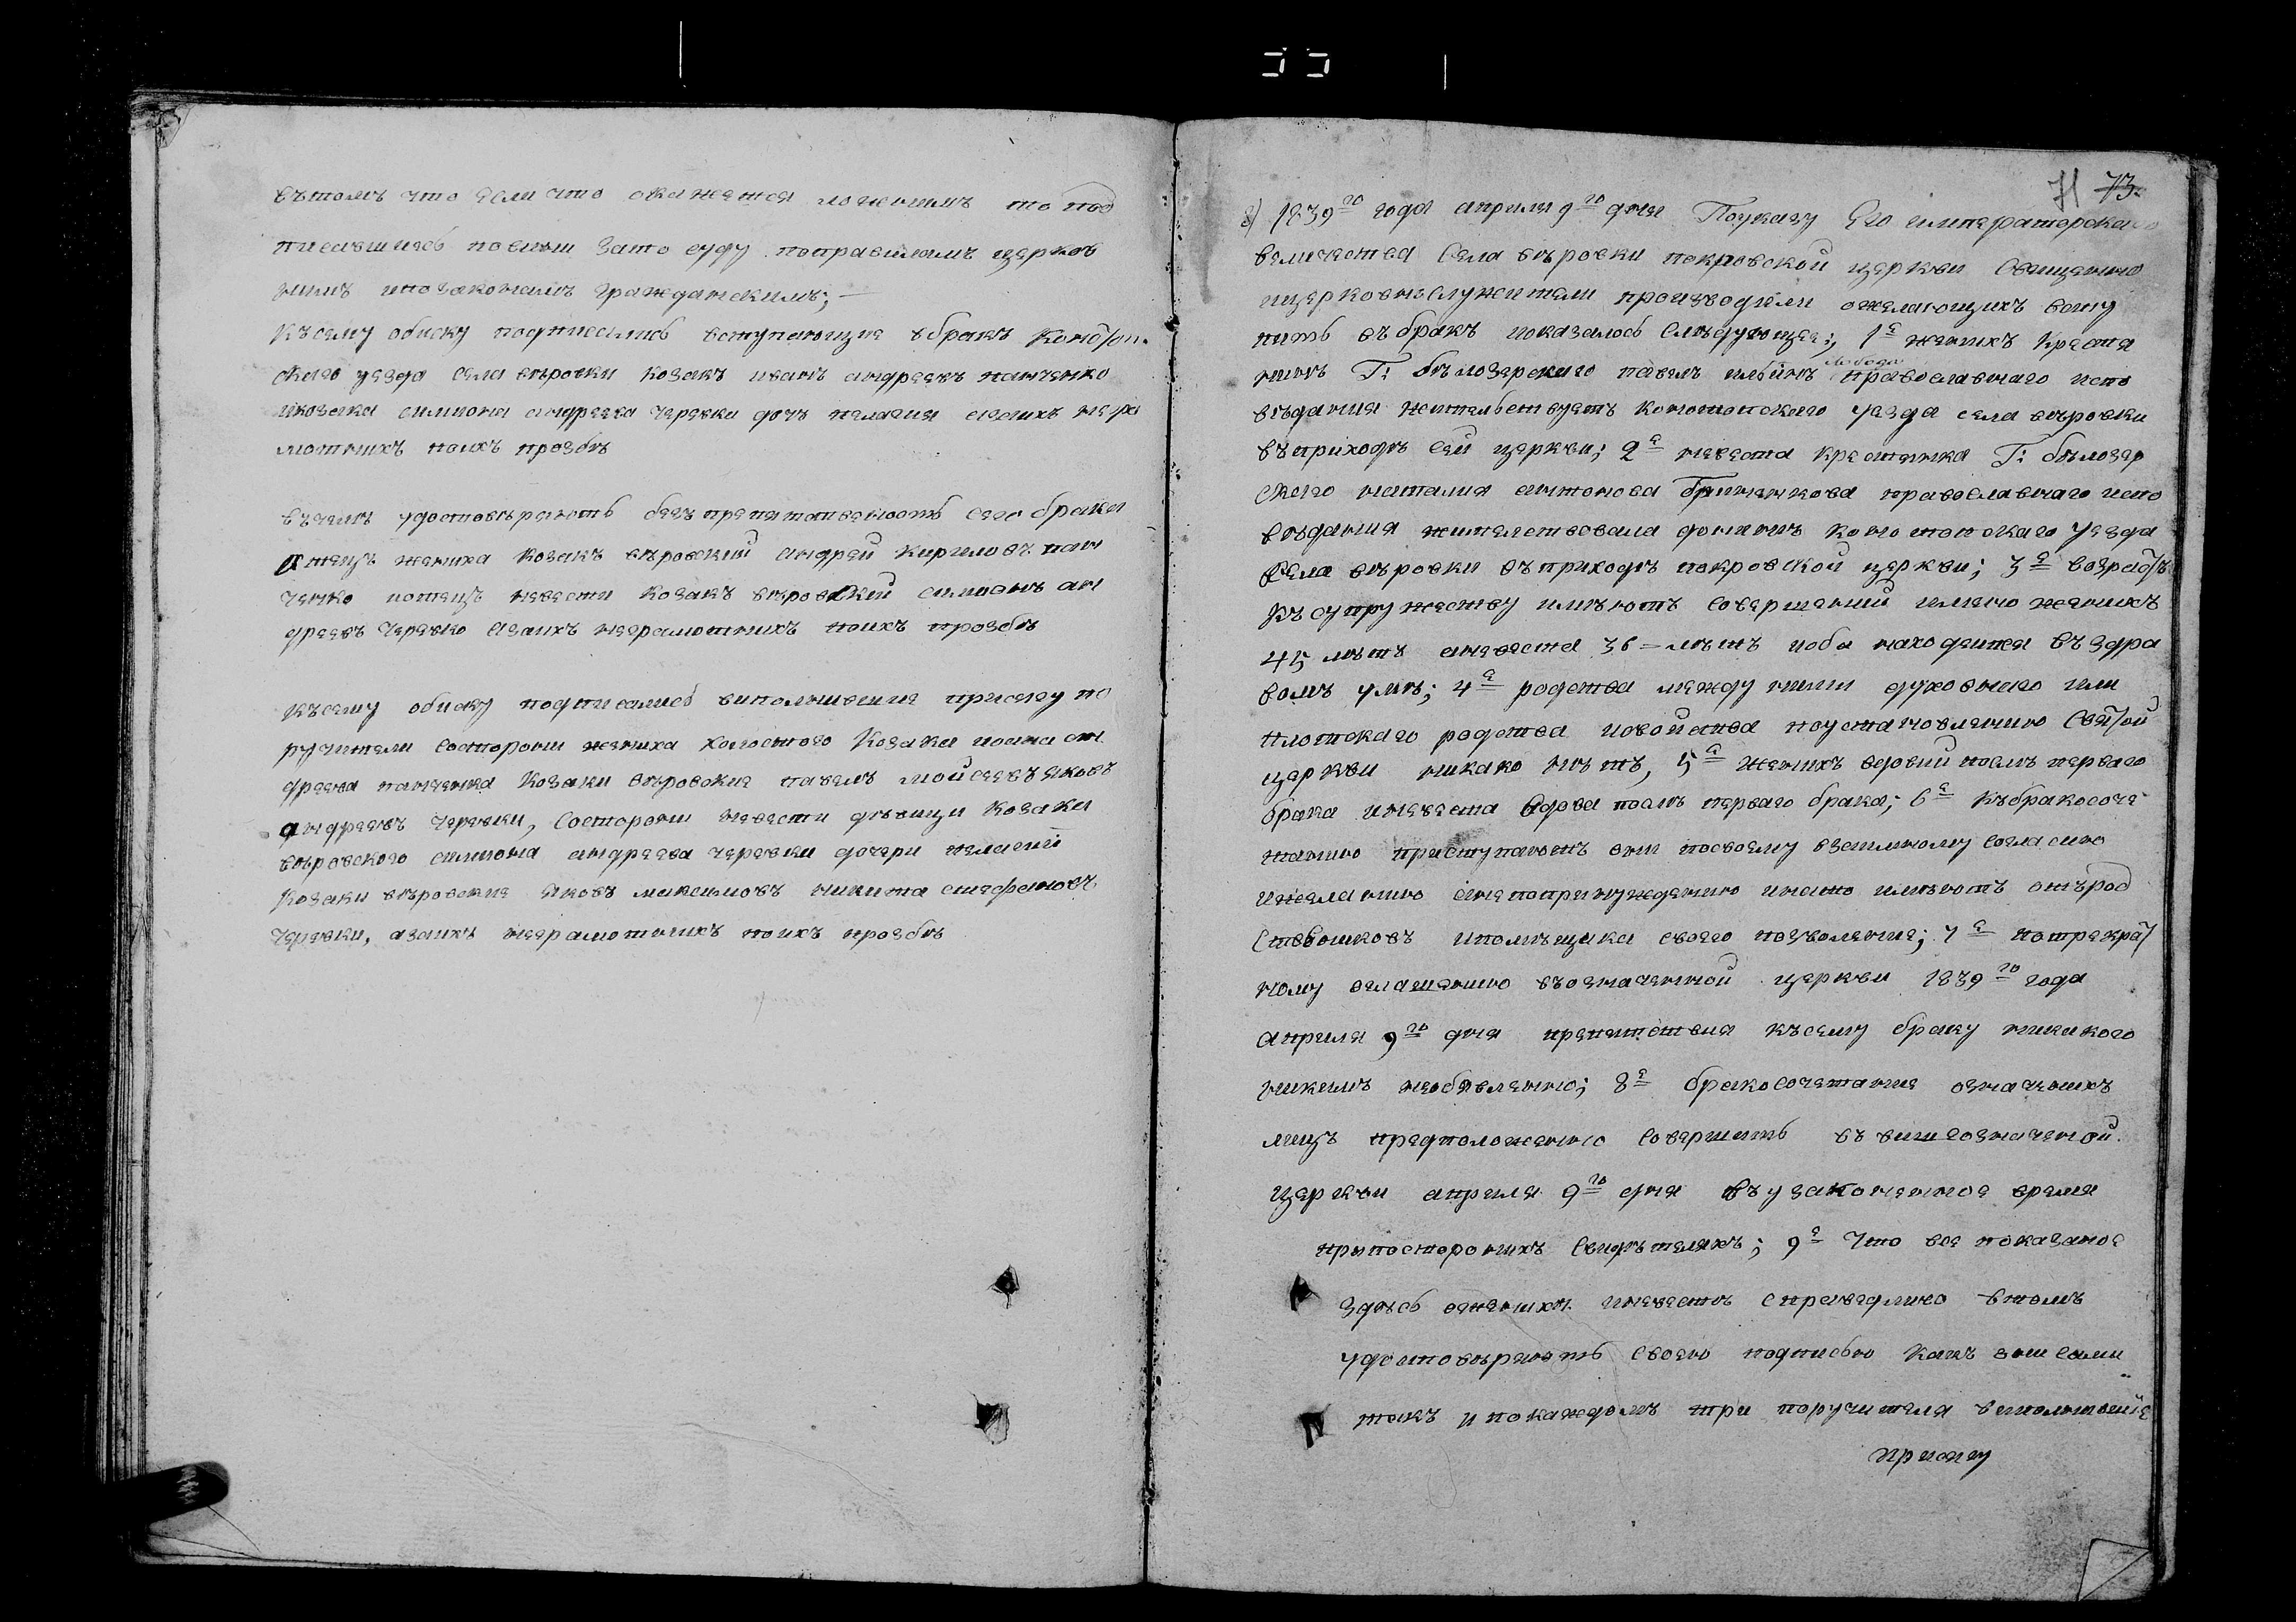 вътомъ что если что окажется ложнымъ то под
писавшиесь повины зато суду поправиламъ церков
нымъ ипозаконамъ гражданскимъ;
Ксему обыску подписались вступающия вбракъ Конотоп.
скаго уезда села вировки козакъ иванъ андреевъ панченко
икозака симиона андреева черевки дочъ пелагия азаихъ негра
мотныхъ поихъ прозбѣ
вчемъ удостовѣряютъ безъ препятственость сего брака
отецъ жениха козакъ вѣровский андрей кириловъ пан
ченко иотецъ невести козакъ вѣровский симионъ ан
дреевъ черевко азаихъ неграмотныхъ поихъ прозбѣ
ксему обыску подписались виполнившия присягу по
ручители состороны жениха холостого козака иоана ан
дреева панченка козаки вѣровския павелъ мойсеевъ яковъ
андреевъ черевки, состороны невести дѣвици козака
вѣровского симиона андреева черевки дочери пелагий
козаки вѣровския яковъ максимовъ никита стефановъ
черевки, азаихъ неграмотныхъ поихъ прозбѣ
71 73.
8) 1839го года априля 9го дня Поуказу Его императорскаго
величества Села вѣровки покровской церкви Священно
ицерковнослужители производили ожелающихъ всту
пить въбракъ показалось слѣдующее; 1е женихъ крестя
нинъ Г: бѣлозерскаго павелъ ильинъ Лобода православнаго испо
вѣдания жительствуетъ конотопскаго уезда села вѣровки
въприходѣ сей церкви; 2е невеста крестянка Г: бѣлозер
скаго наталия антонова православнаго испо
вѣдания жителствовала донинѣ конотопскаго уезда
Села вѣровки въприходѣ покровской церкви; 3е возрастъ
Къ супружеству имѣютъ совершений имено женихъ
45 лѣтъ аневеста 36 = лѣтъ иоба находятся въ здра
вомъ умѣ; 4е родства между ними духовнаго или
плотскаго родства исвойства поустановлению святой
церкви никако нѣтъ, 5е женихъ вдовий послѣ перваго
брака иневеста вдова послѣ перваго брака; 6е къбракосоче
танию приступаютъ они посвоему взаимному согласию
ижеланию анепопринуждению инато имѣютъ отърод
ственниковъ ипомѣщика своего позволение; 7е потрекрат
ному оглашению въозначенной церкви 1839го года
априля 9го дня препятствия ксему браку никакого
никимъ необявлено; 8е бракосочетание означеныхъ
лицъ предположенно совершить въ вишеозначеной
церкви априля 9го дня въузаконенное время
припосторонихъ свидѣтеляхъ; 9е Что все показаное
здѣсь оженихѣ иневестѣ справедливо втомъ
удостовѣряютъ своею подписью какъ они сами
такъ и покаждомъ три поручителя виполнивший
присягу